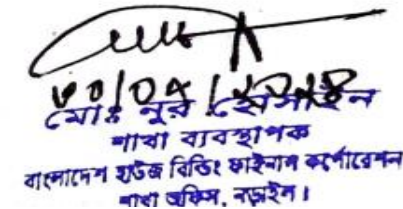 মোঃ নূর হোসাইন
শাখা ব্যবস্থাপক
বাংলাদেশ হাউজ বিল্ডিং ফাইনান্স কর্পোরেশন
শাখা অফিস, নড়াইল।